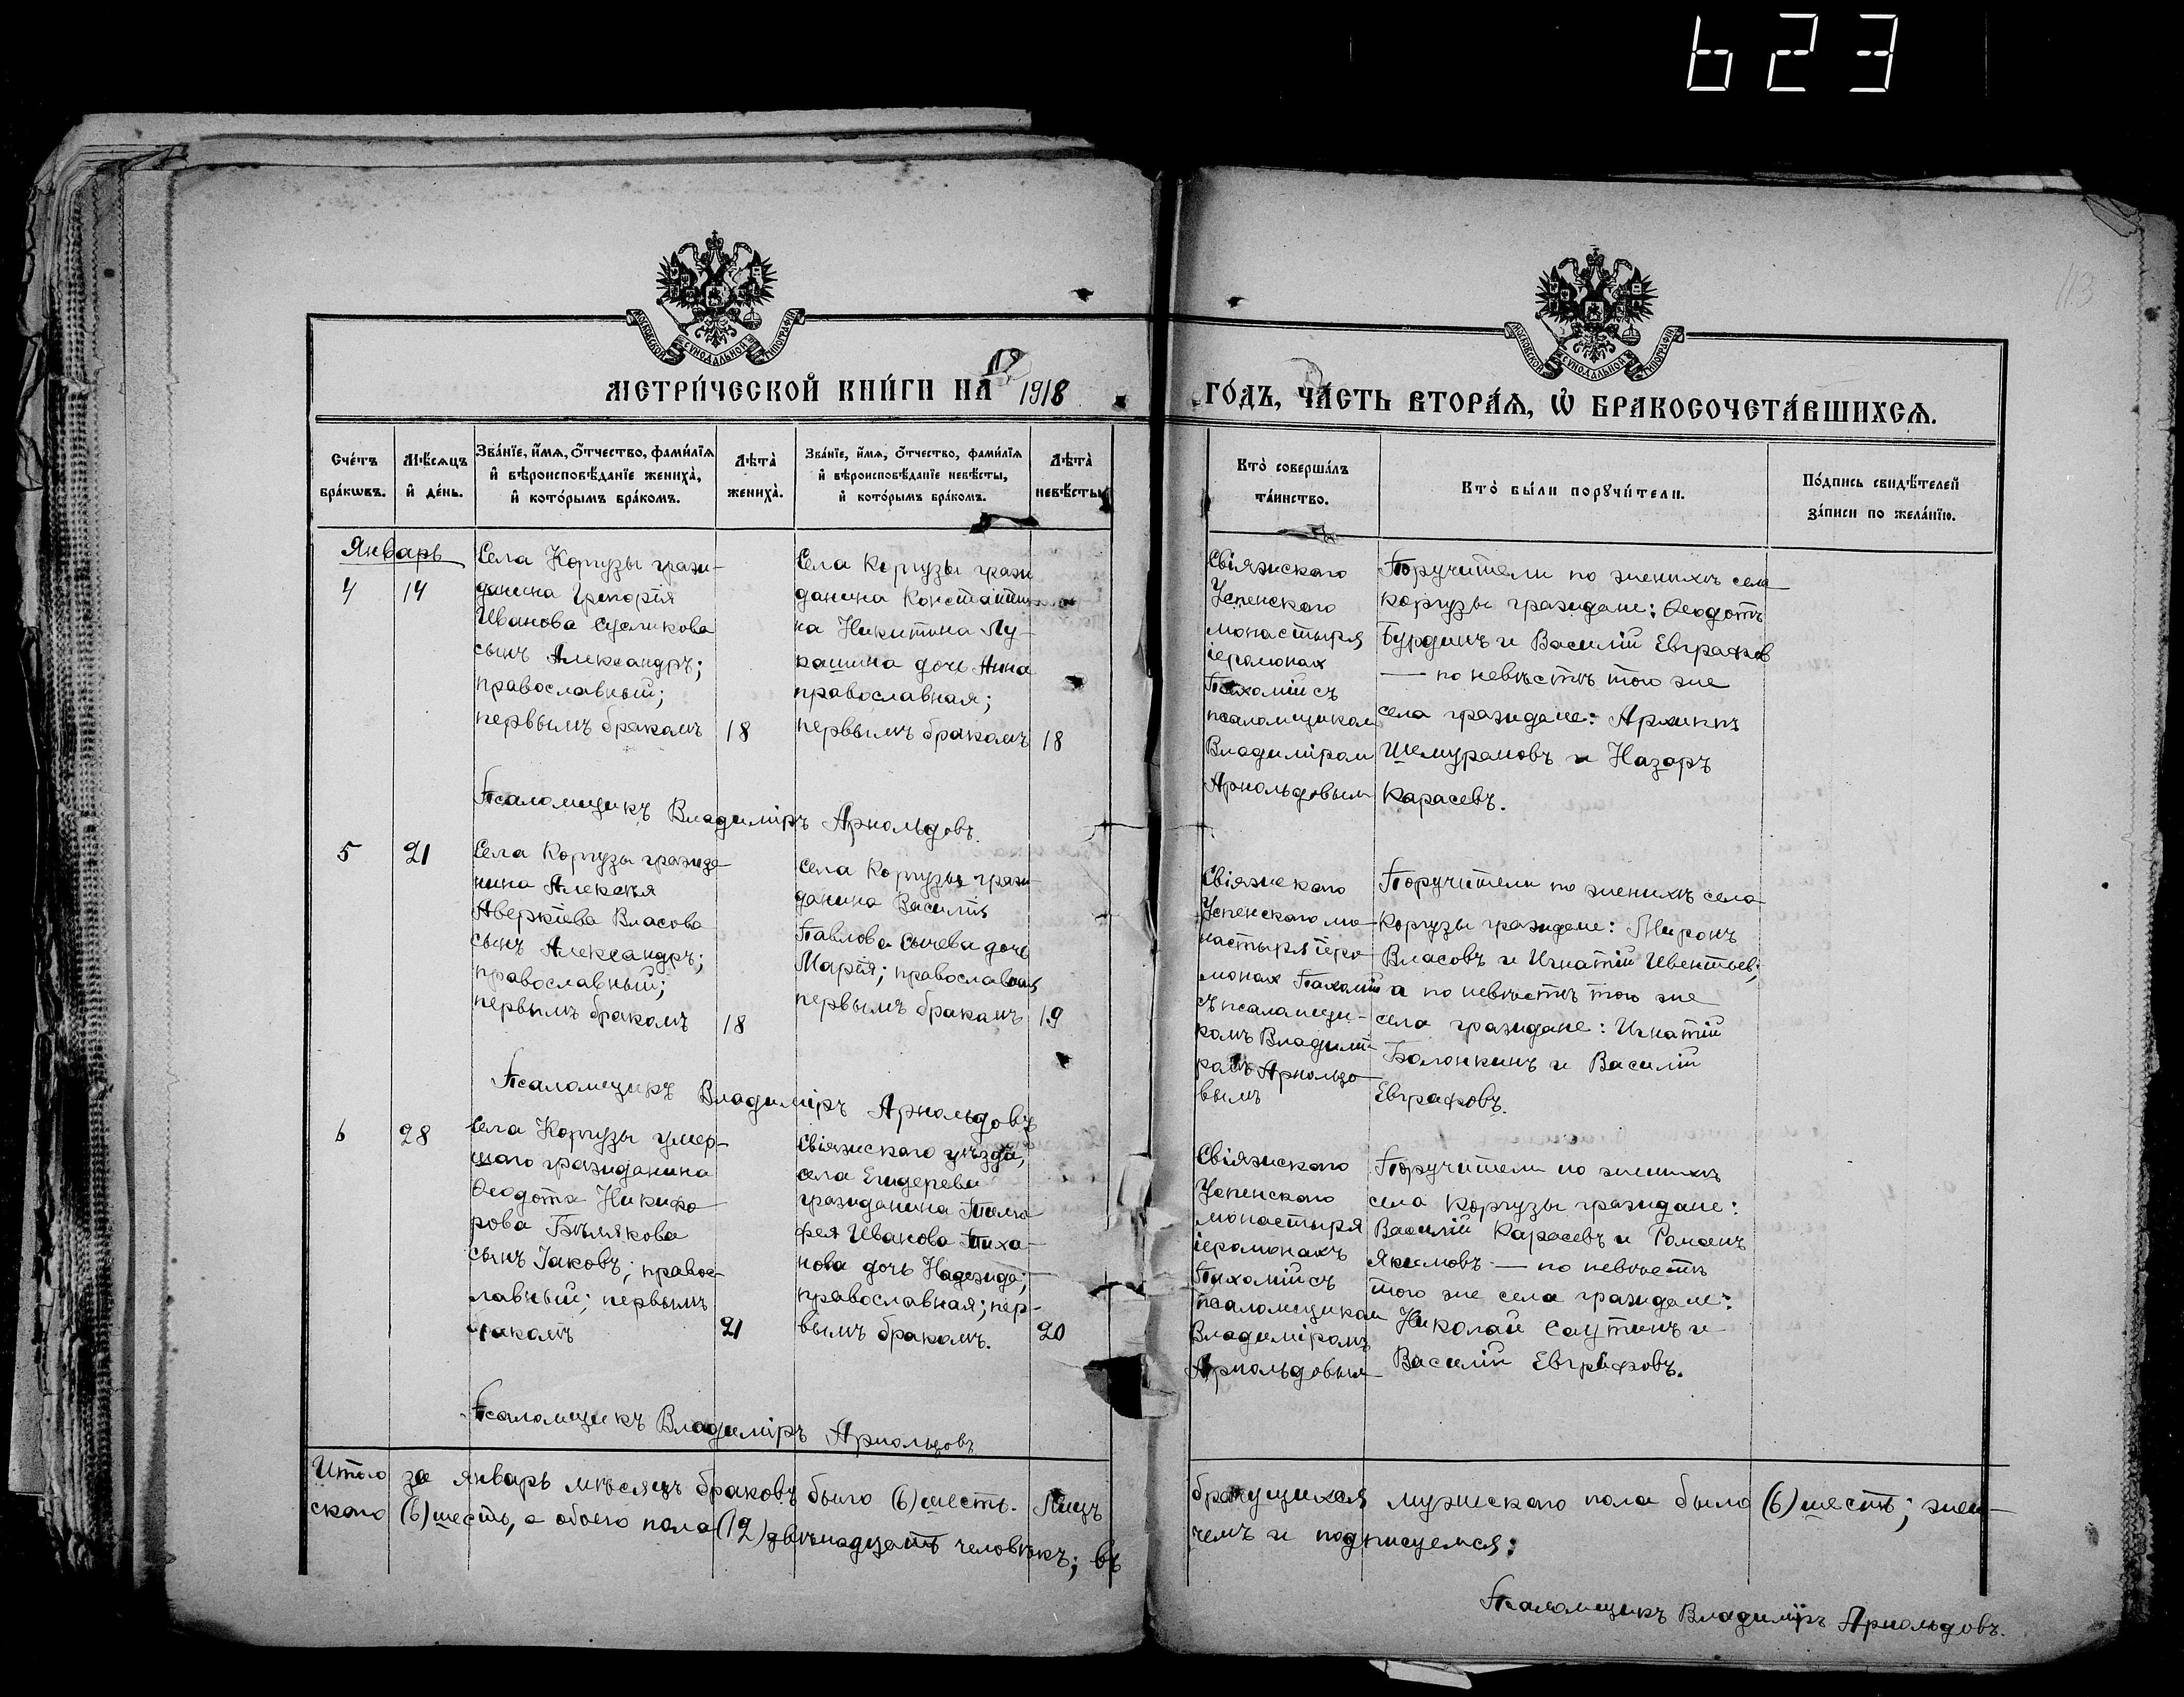 623
113
МОСКОВСКОЙ СѴНОДАЛЬНОЙ ТИПОГРАФІИ
МОСКОВСКОЙ СѴНОДАЛЬНОЙ ТИПОГРАФІИ
МЕТРИ́ЧЕСКОЙ КНИ́ГИ НА 1918
ГО́ДЪ, ЧА́СТЬ ВТОРА́Ѧ, Ѡ БРАКОСОЧЕТА́ВШИХСѦ.
Сче́тъ бра́кѡвъ.
Мѣ́сѧцъ и҆ де́нь.
Зва́нїе, и҆́мѧ, о҆́тчество, фами́лїѧ
и҆ вѣроисповѣ́данїе жениха̀,
и҆ кото́рымъ бра́комъ.
Лѣта̀ жениха̀.
Зва́нїе, и҆́мѧ, о҆́тчество, фами́лїѧ
и҆ вѣроисповѣ́данїе невѣ́сты,
и҆ кото́рымъ бра́комъ.
Лѣта̀ невѣ́сты.
Кто̀ соверша́лъ
та́инство.
Кто̀ бы́ли порꙋчи́тели.
По́дпись свидѣ́телей
за́писи по жела́нїю.
Январь
4 14
Села Коргузы граж-
данина Григорія
Иванова Сусликова
сынъ Александръ;
православный;
первымъ бракомъ 18
Села Коргузы граж
данина Константи
на Никитина Лу-
кашина дочь Анна
православная;
первымъ бракомъ 18
Свіяжскаго
Успенскаго
монастыря
іеромонах
Пахомій съ
псаломщиком
Владиміром
Арнольдовым
Поручители по женихѣ села
Коргузы граждане: Ѳеодотъ
Бурдинъ и Василій Евграфов
— по невѣстѣ того же
села граждане: Архипъ
Шемурановъ и Назаръ
Карасевъ.
Псаломщикъ Владиміръ Арнольдовъ.
5 21
Села Коргузы гражда-
нина Алексѣя
Аверкіева Власова
сынъ Александръ;
православный;
первымъ бракомъ 18
Села Коргузы граж-
данина Василія
Павлова Сычева дочь
Марія; православная
первымъ бракомъ 19
Свіяжскаго
Успенскаго мо-
настыря іеро-
монах Пахомій
съ псаломщи-
комъ Владимі-
ромъ Арнольдо-
вымъ
Поручители по женихѣ села
Коргузы граждане: Миронъ
Власовъ и Игнатій Ивентьев;
а по невѣстѣ того же
села граждане: Игнатій
Болонкинъ и Василій
Евграфовъ.
Псаломщикъ Владиміръ Арнольдовъ
6 28
Села Коргузы умер-
шаго гражданина
Ѳеодота Никифо-
рова Бѣлякова
сынъ Іаковъ; правос-
лавный; первымъ
бракомъ 21
Свіяжскаго уѣзда,
села Егидерева
гражданина Тимо-
фея Иванова Тиха-
нова дочь Надежда;
православная; пер-
вымъ бракомъ. 20
Свіяжскаго
Успенскаго
монастыря
іеромонахъ
Пахомій съ
псаломщиком
Владиміромъ
Арнольдовым
Поручители по женихѣ
села Коргузы граждане:
Василій Карасевъ и Романъ
Якимовъ — по невѣстѣ
того же села граждане:
Николай Саутинъ и
Василій Евграфовъ.
Псаломщикъ Владиміръ Арнольдовъ
Итого за январь мѣсяцъ браковъ было (6) шесть. Лицъ брачущихся мужскаго пола было (6) шесть; жен-
скаго (6) шесть, а обоего пола (12) двѣнадцать человѣкъ; въ чемъ и подписуемся:
Псаломщикъ Владиміръ Арнольдовъ.